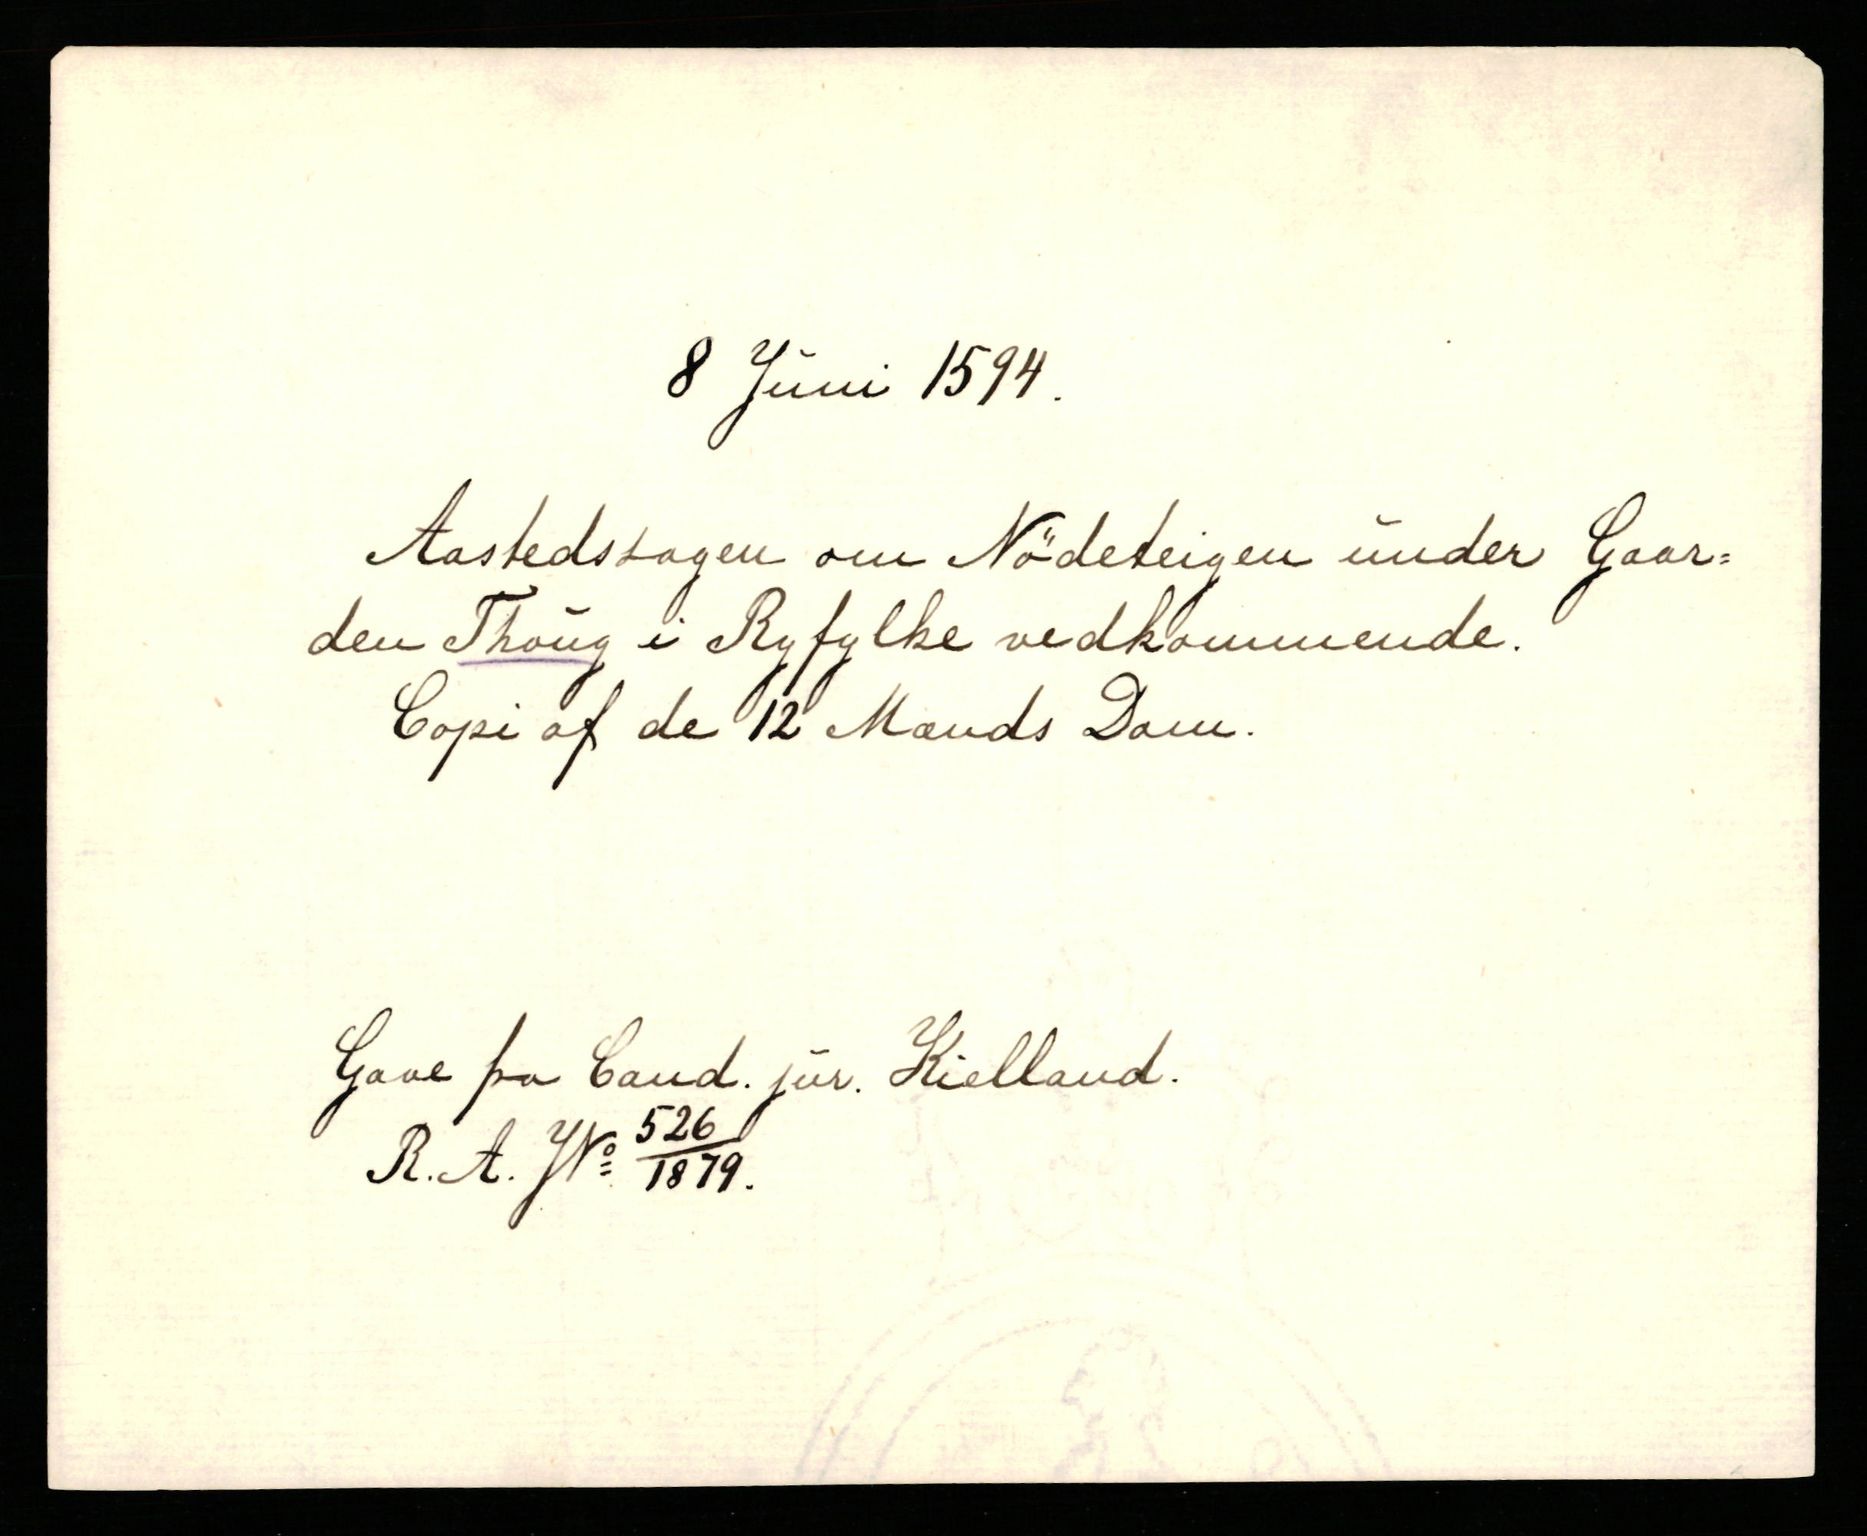 8 Juni 1594.
Aastedssagen om Nödeteigen under Gaar=
den Thoug i Ryfylke vedkommende.
Copi af de 12 Mænds Dom.
Gave fra Cand. jur. Kielland.
R. A. JNo 526/1879.